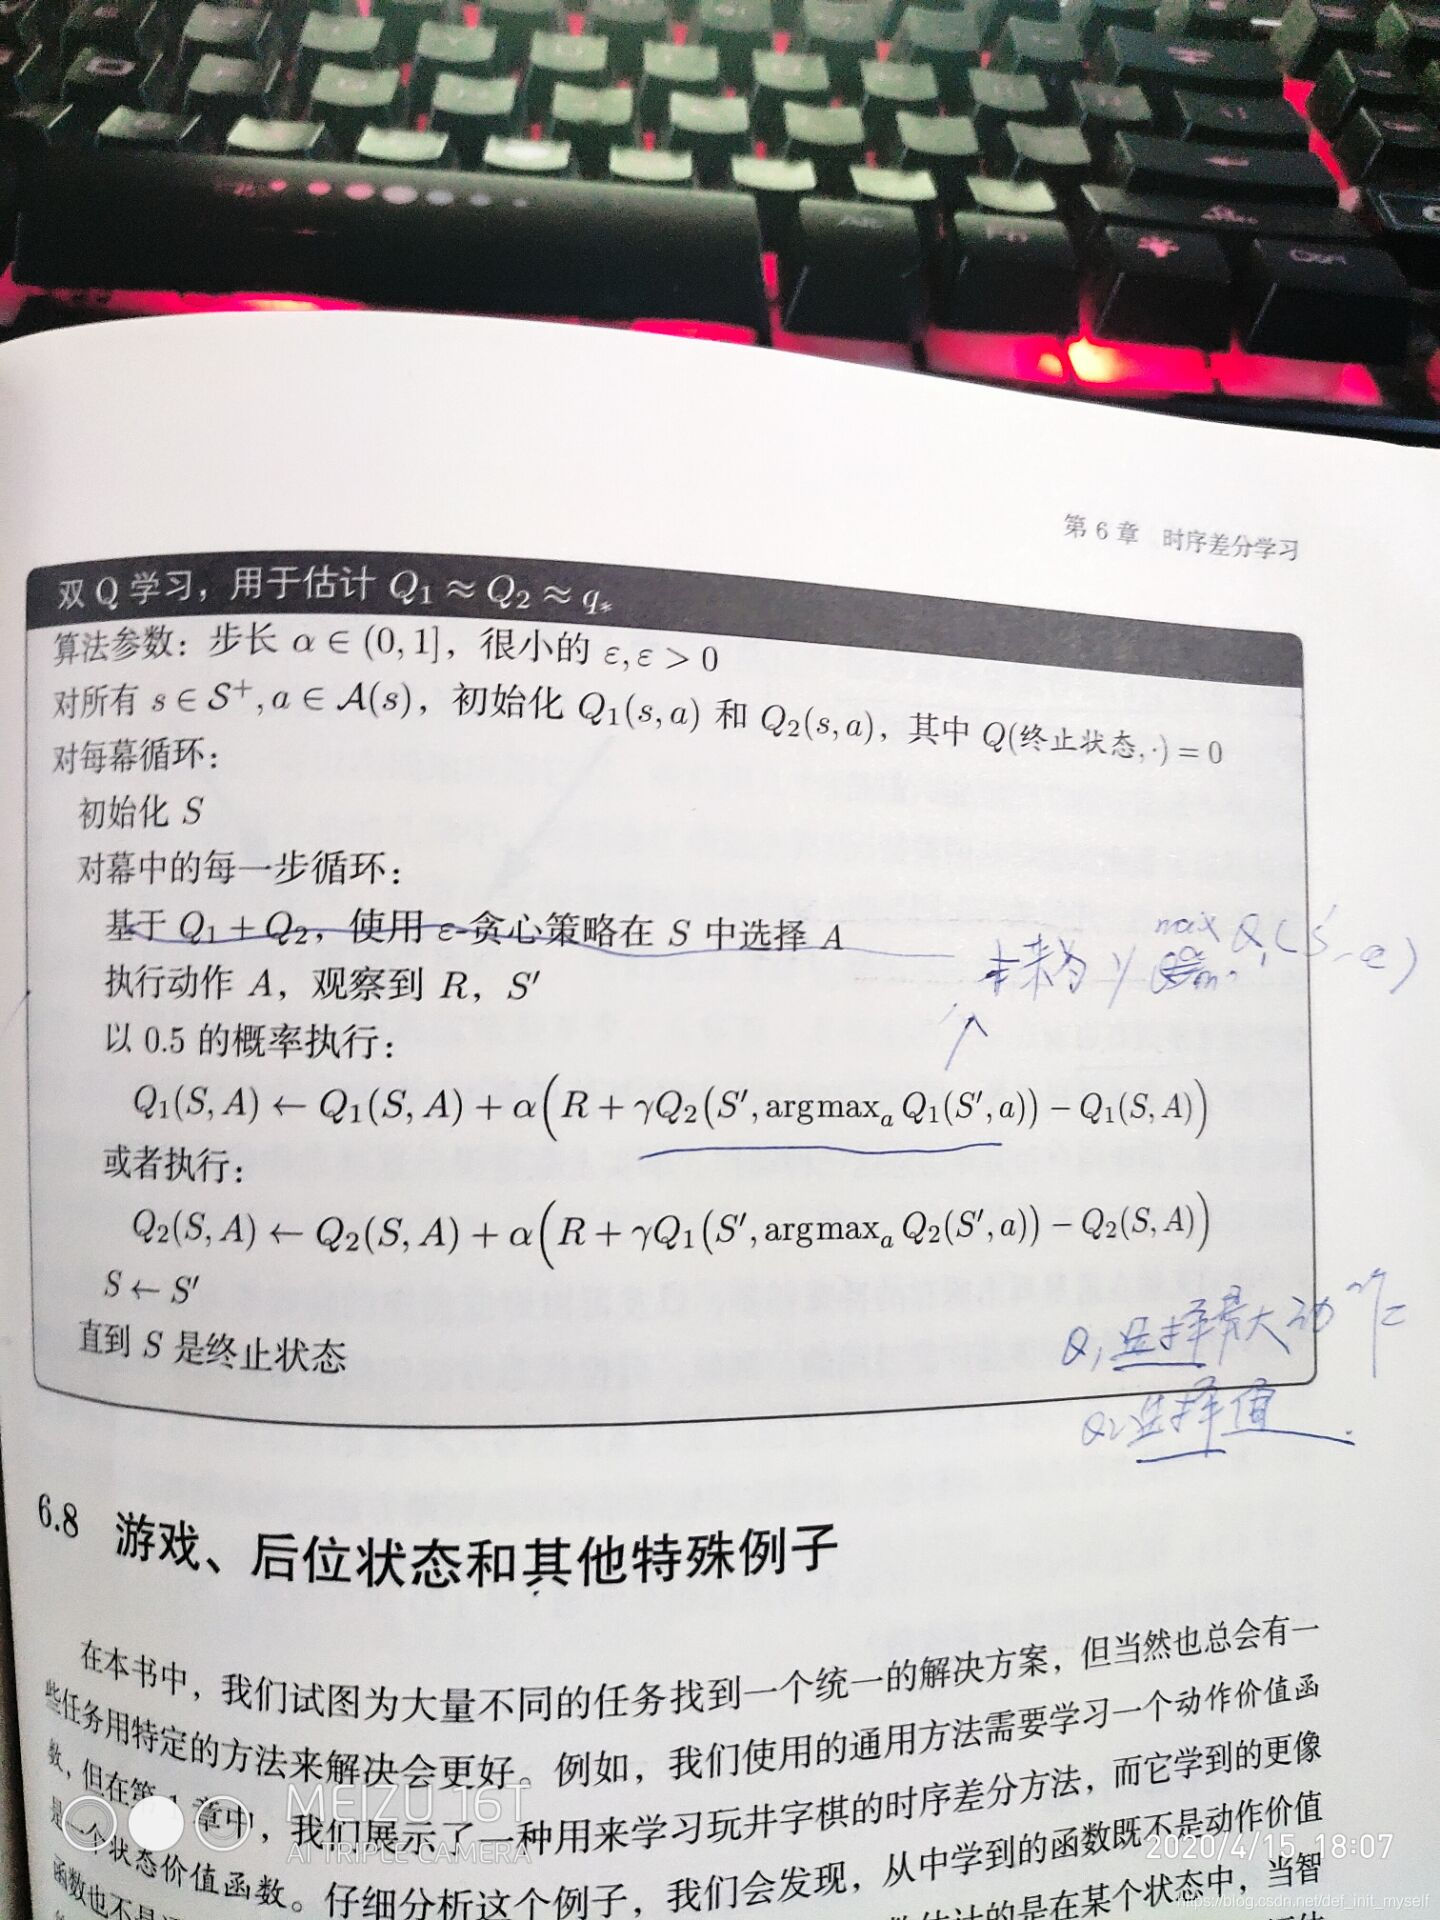 第 6 章 时序差分学习
双 Q 学习，用于估计 Q₁ ≈ Q₂ ≈ q*
算法参数：步长 α ∈ (0, 1]，很小的 ε, ε > 0
对所有 s ∈ S⁺, a ∈ A(s)，初始化 Q₁(s, a) 和 Q₂(s, a)，其中 Q(终止状态, ·) = 0
对每幕循环：
初始化 S
对幕中的每一步循环：
基于 Q₁ + Q₂，使用 ε-贪心策略在 S 中选择 A
max Q₁(S′, a)
执行动作 A，观察到 R，S′
以 0.5 的概率执行：
Q₁(S, A) ← Q₁(S, A) + α(R + γQ₂(S′, argmaxₐ Q₁(S′, a)) − Q₁(S, A))
或者执行：
Q₂(S, A) ← Q₂(S, A) + α(R + γQ₁(S′, argmaxₐ Q₂(S′, a)) − Q₂(S, A))
S ← S′
直到 S 是终止状态
Q₁ 选择最大动作
Q₂ 选择值
6.8 游戏、后位状态和其他特殊例子
在本书中，我们试图为大量不同的任务找到一个统一的解决方案，但当然也总会有一
些任务用特定的方法来解决会更好。例如，我们使用的通用方法需要学习一个动作价值函
数，但在第 1 章中，我们展示了一种用来学习玩井字棋的时序差分方法，而它学到的更像
是一个状态价值函数。仔细分析这个例子，我们会发现，从中学到的函数既不是动作价值
函数也不是 估计的是在某个状态中，当智
MEIZU 16T
AI TRIPLE CAMERA
2020/4/15 18:07
https://blog.csdn.net/def_init_myself